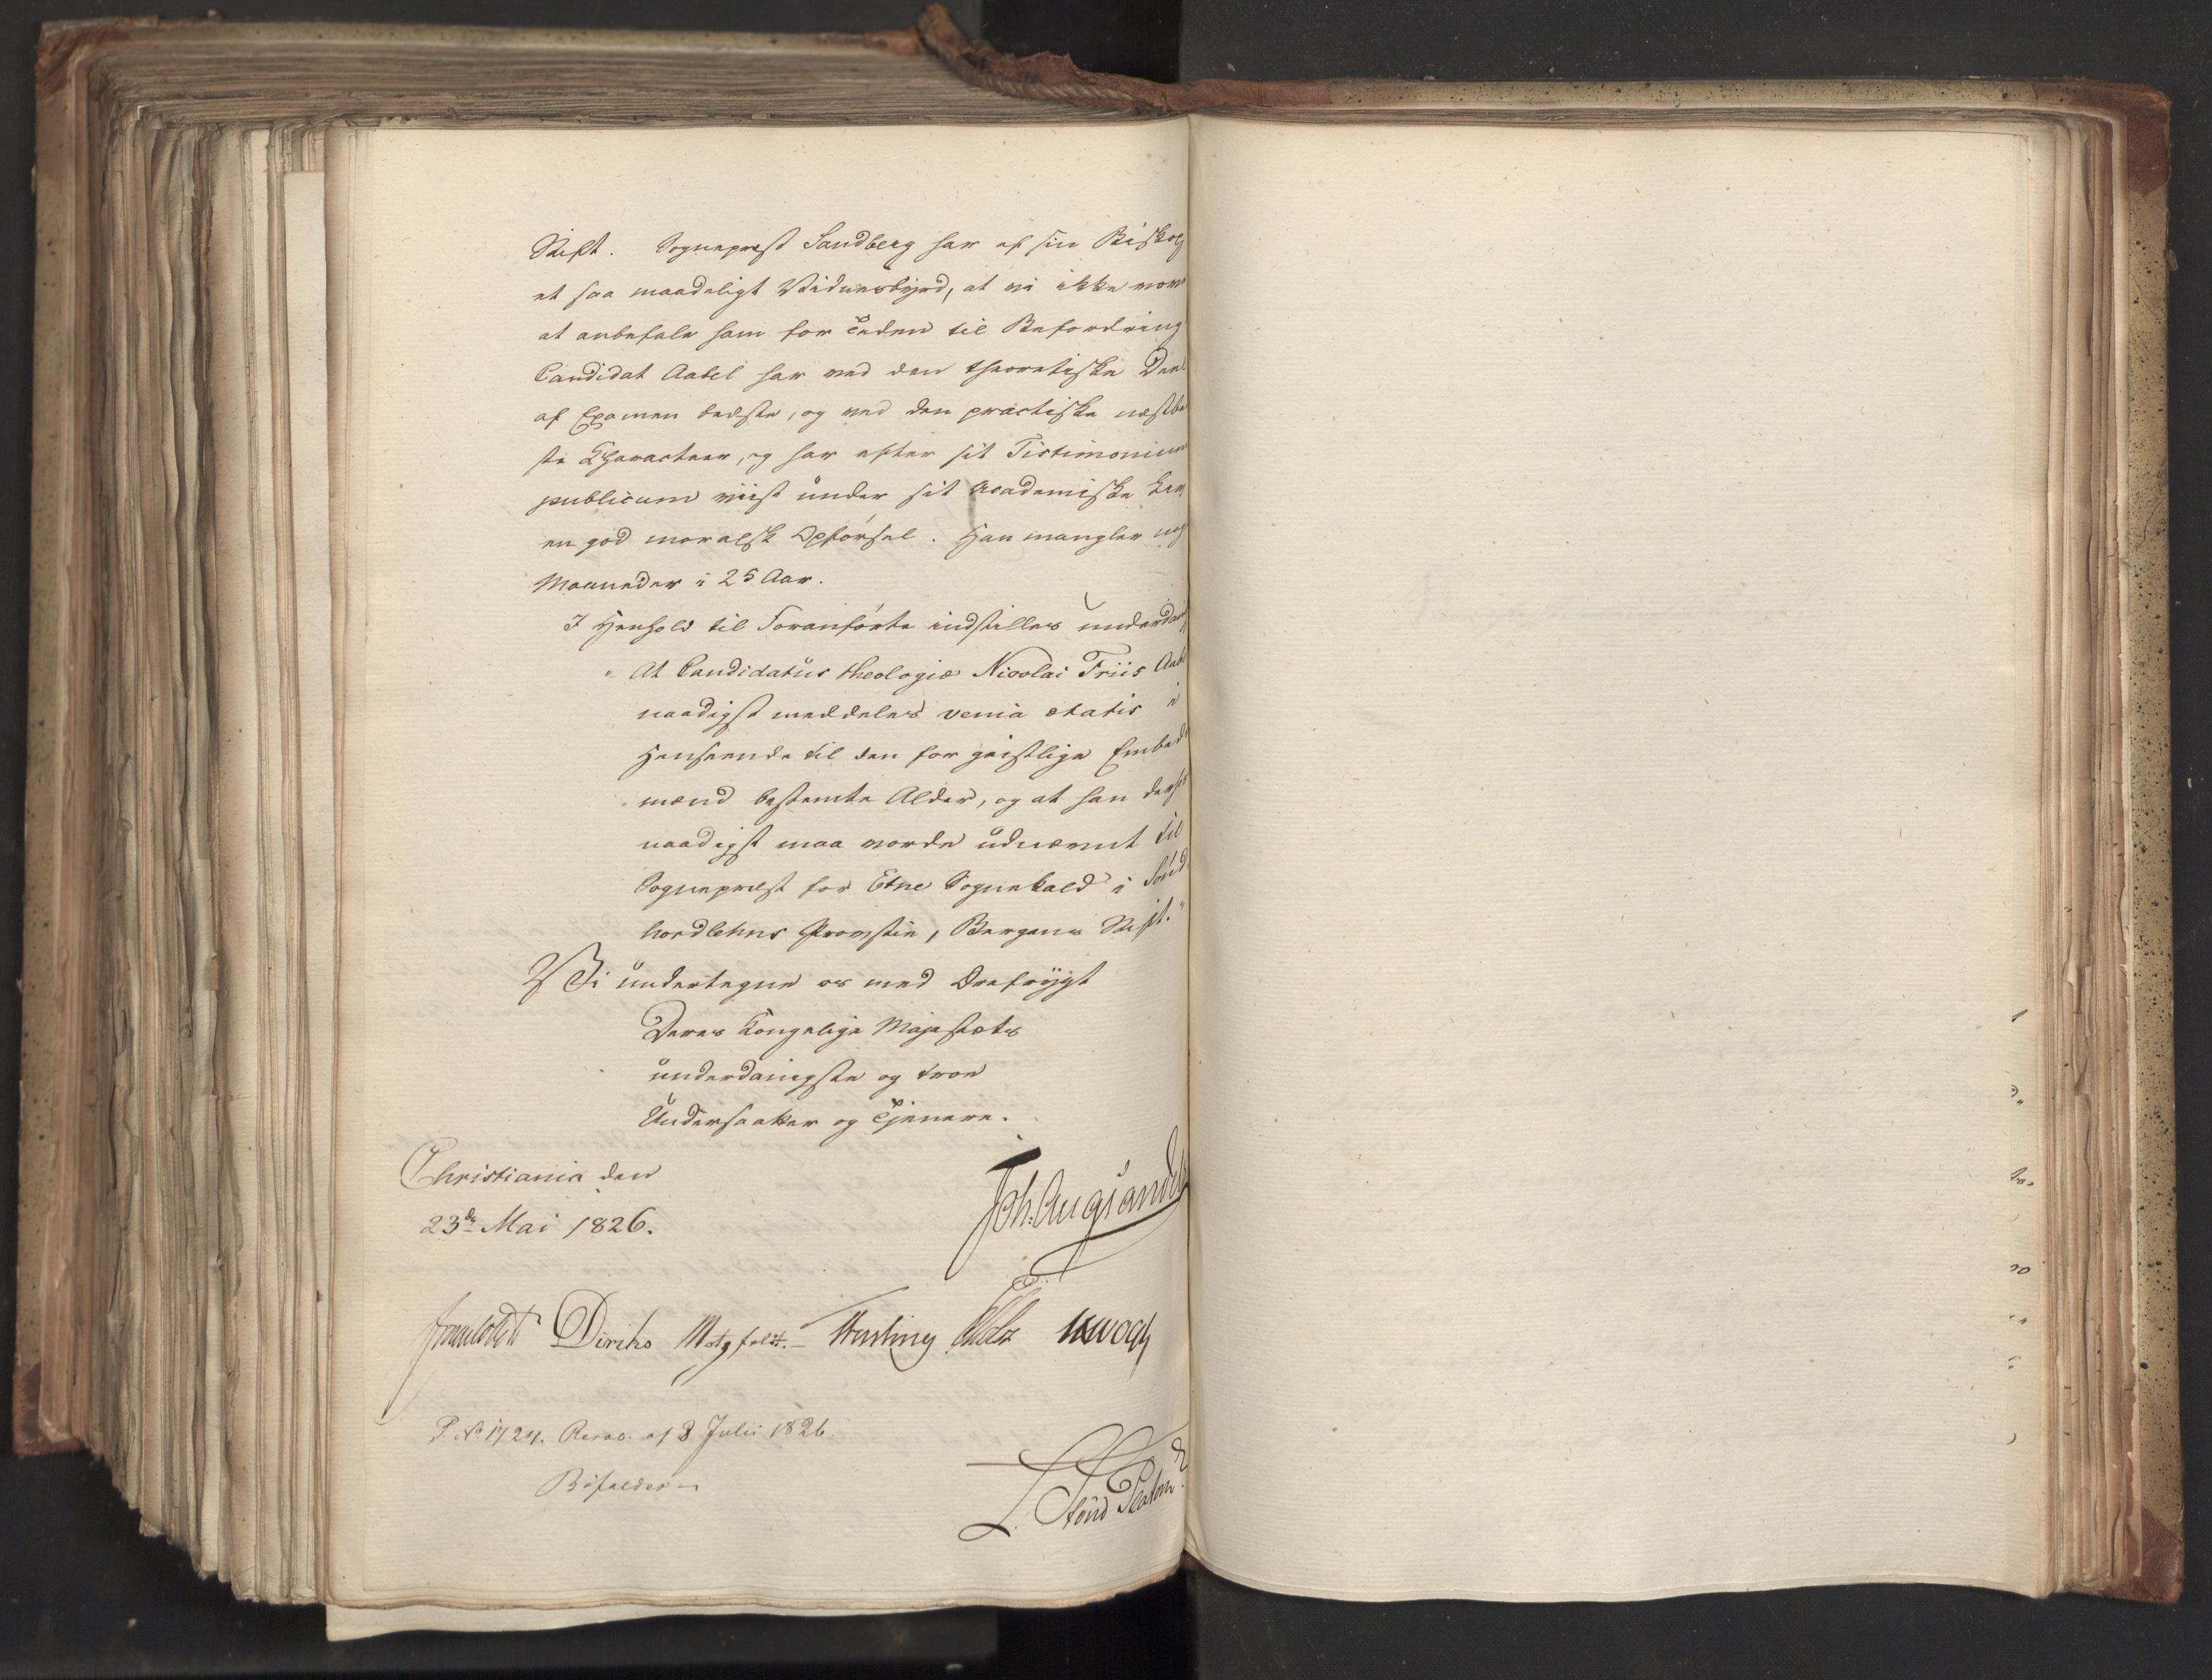 Stift. Sognepræst Sandberg har af sin Biskop
et saa maadeligt Vidnesbyrd, at vi ikke vove
at anbefale ham for Tiden til Befordring
Candidat Aabel har ved den theoretiske Deel
af Examen bedste, og ved den practiske næstbed
ste Characteer, og har efter sit Testimonium
publicum viist under sit Academiske
en god moralsk Opførsel. Han mangler nog
Maaneder i 25 Aar.
I Henhold til Foranførte indstilles underdan
"At Candidatus theologiæ Nicolai Friis Aabel
naadigst meddeles venia ætatis i
Henseende til den for geistlige Embeds
mænd bestemte Alder, og at han derhos
naadigst maa vorde udnævnt til
Sognepræst for Etne Sognekald i Sønd
hordlehns Provstie, Bergens Stift."
Vi undertegne os med Ærefrygt
Deres Kongelige Majestæts
underdanigste og troe
Undersaatter og Tjenere.
Christiania den
23de Mai 1826.
Joh. Aug Sandels
Diriks Motzfeldt. Fasting
P. No 1724. Resol. af 8 Julii 1826.
Bifaldes